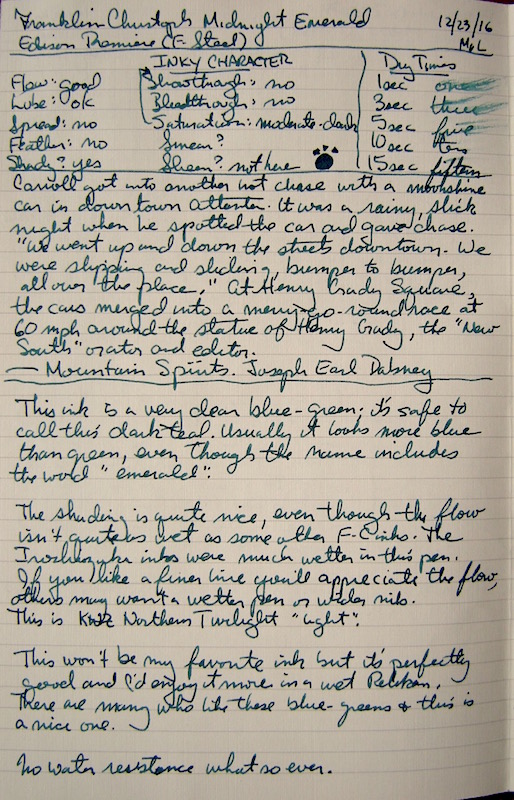 Franklin-Christoph Midnight Emerald
12/23/16
Edison Premiere (F-Steel)
M&L
INKY CHARACTER
Dry Times
Flow: good
Showthrough: no
1sec one
Lube: o/c
Bleedthrough: no
3sec three
Spread: no
Saturation: moderate-dark
5sec five
Feather: no
Smear?
10sec ten
Shade? yes
Sheen? not here
15sec fifteen
Carroll got into another hot chase with a moonshine
car in downtown Atlanta. It was a rainy, slick
night when he spotted the car and gave chase.
"We went up and down the streets downtown. We
were slipping and sliding, bumper to bumper,
all over the place." At Henry Grady Square,
the cars merged into a merry-go-round race at
60 mph around the statue of Henry Grady, the "New
South" orator and editor.
— Mountain Spirits. Joseph Earl Dabney
This ink is a very clear blue-green; it's safe to
call this dark teal. Usually it looks more blue
than green, even though the name includes
the word "emerald".
The shading is quite nice, even though the flow
isn't quite as wet as some other F-C inks. The
Iroshizuku inks were much wetter in this pen.
If you like a finer line you'll appreciate the flow,
others may want a wetter pen or wider nib.
This is KWZ Northern Twilight "light".
This won't be my favorite ink but it's perfectly
good and I'd enjoy it more in a wet Pelikan.
There are many who like these blue-greens & this is
a nice one.
No water resistance what so ever.